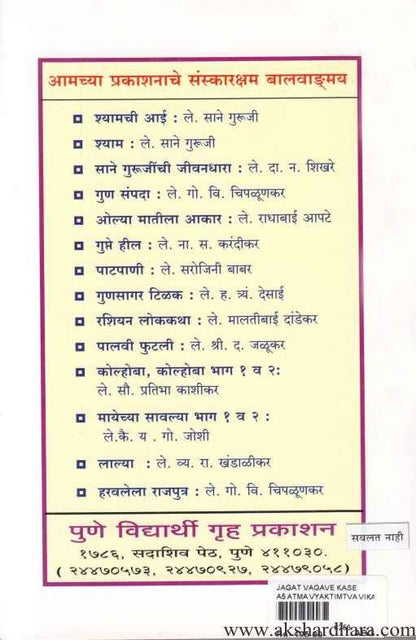 आमच्या प्रकाशनाचे संस्कारक्षम बालवाङ्मय
श्यामची आई : ले. साने गुरूजी
श्याम : ले. साने गुरूजी
साने गुरूजींची जीवनधारा : ले. दा. न. शिखरे
गुण संपदा : ले. गो. वि. चिपळूणकर
ओल्या मातीला आकार : ले. राधाबाई आपटे
गुप्ते हील : ले. ना. स. करंदीकर
पाटपाणी : ले. सरोजिनी बाबर
गुणसागर टिळक : ले. ह. त्र्यं. देसाई
रशियन लोककथा : ले. मालतीबाई दांडेकर
पालवी फुटली : ले. श्री. द. जळूकर
कोल्होबा, कोल्होबा भाग १ व २:
ले. सौ. प्रतिभा काशीकर
मायेच्या सावल्या भाग १ व २ :
ले.कै. य . गो. जोशी
लाल्या : ले. व्यं. रा. खंडाळीकर
हरवलेला राजपुत्र : ले. गो. वि. चिपळूणकर
पुणे विद्यार्थी गृह प्रकाशन
सवलत नाही
१७८६, सदाशिव पेठ, पुणे ४११०३०.
( २४४७०५७३, २४४७०९२७, २४४७९०५८)
JAGAT VAGAVE KASE
AS ATMA VYAKTIMTVA VIKA
www.akshardhara.com